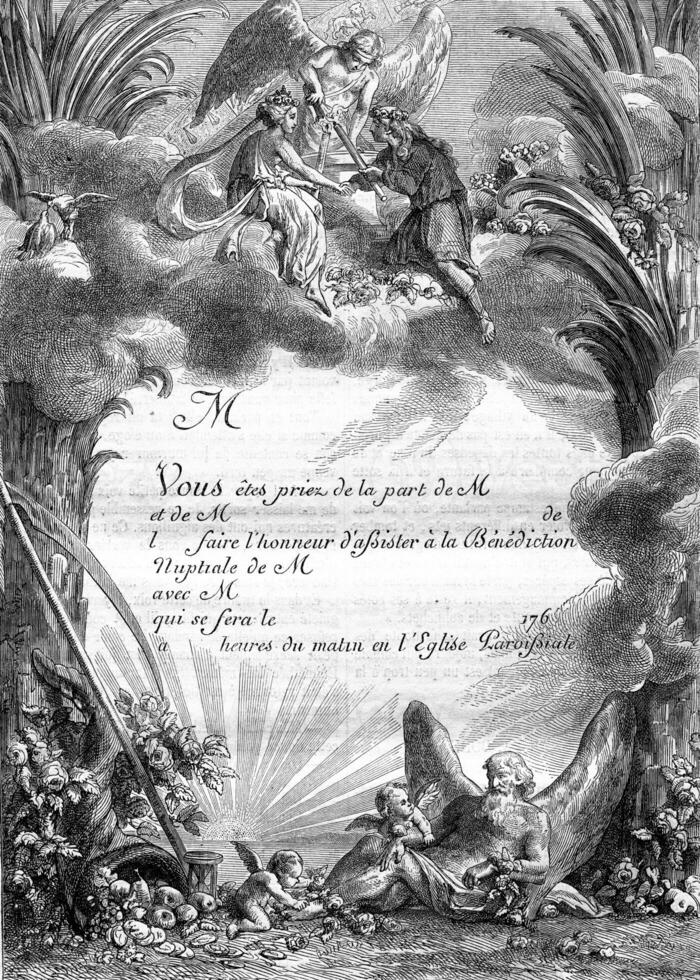 M
Vous êtes priez de la part de M
et de M de
l faire l'honneur d'aſsister à la Bénédiction
Nuptiale de M
avec M
qui se fera le 176
a heures du matin en l'Eglise Paroiſsiale